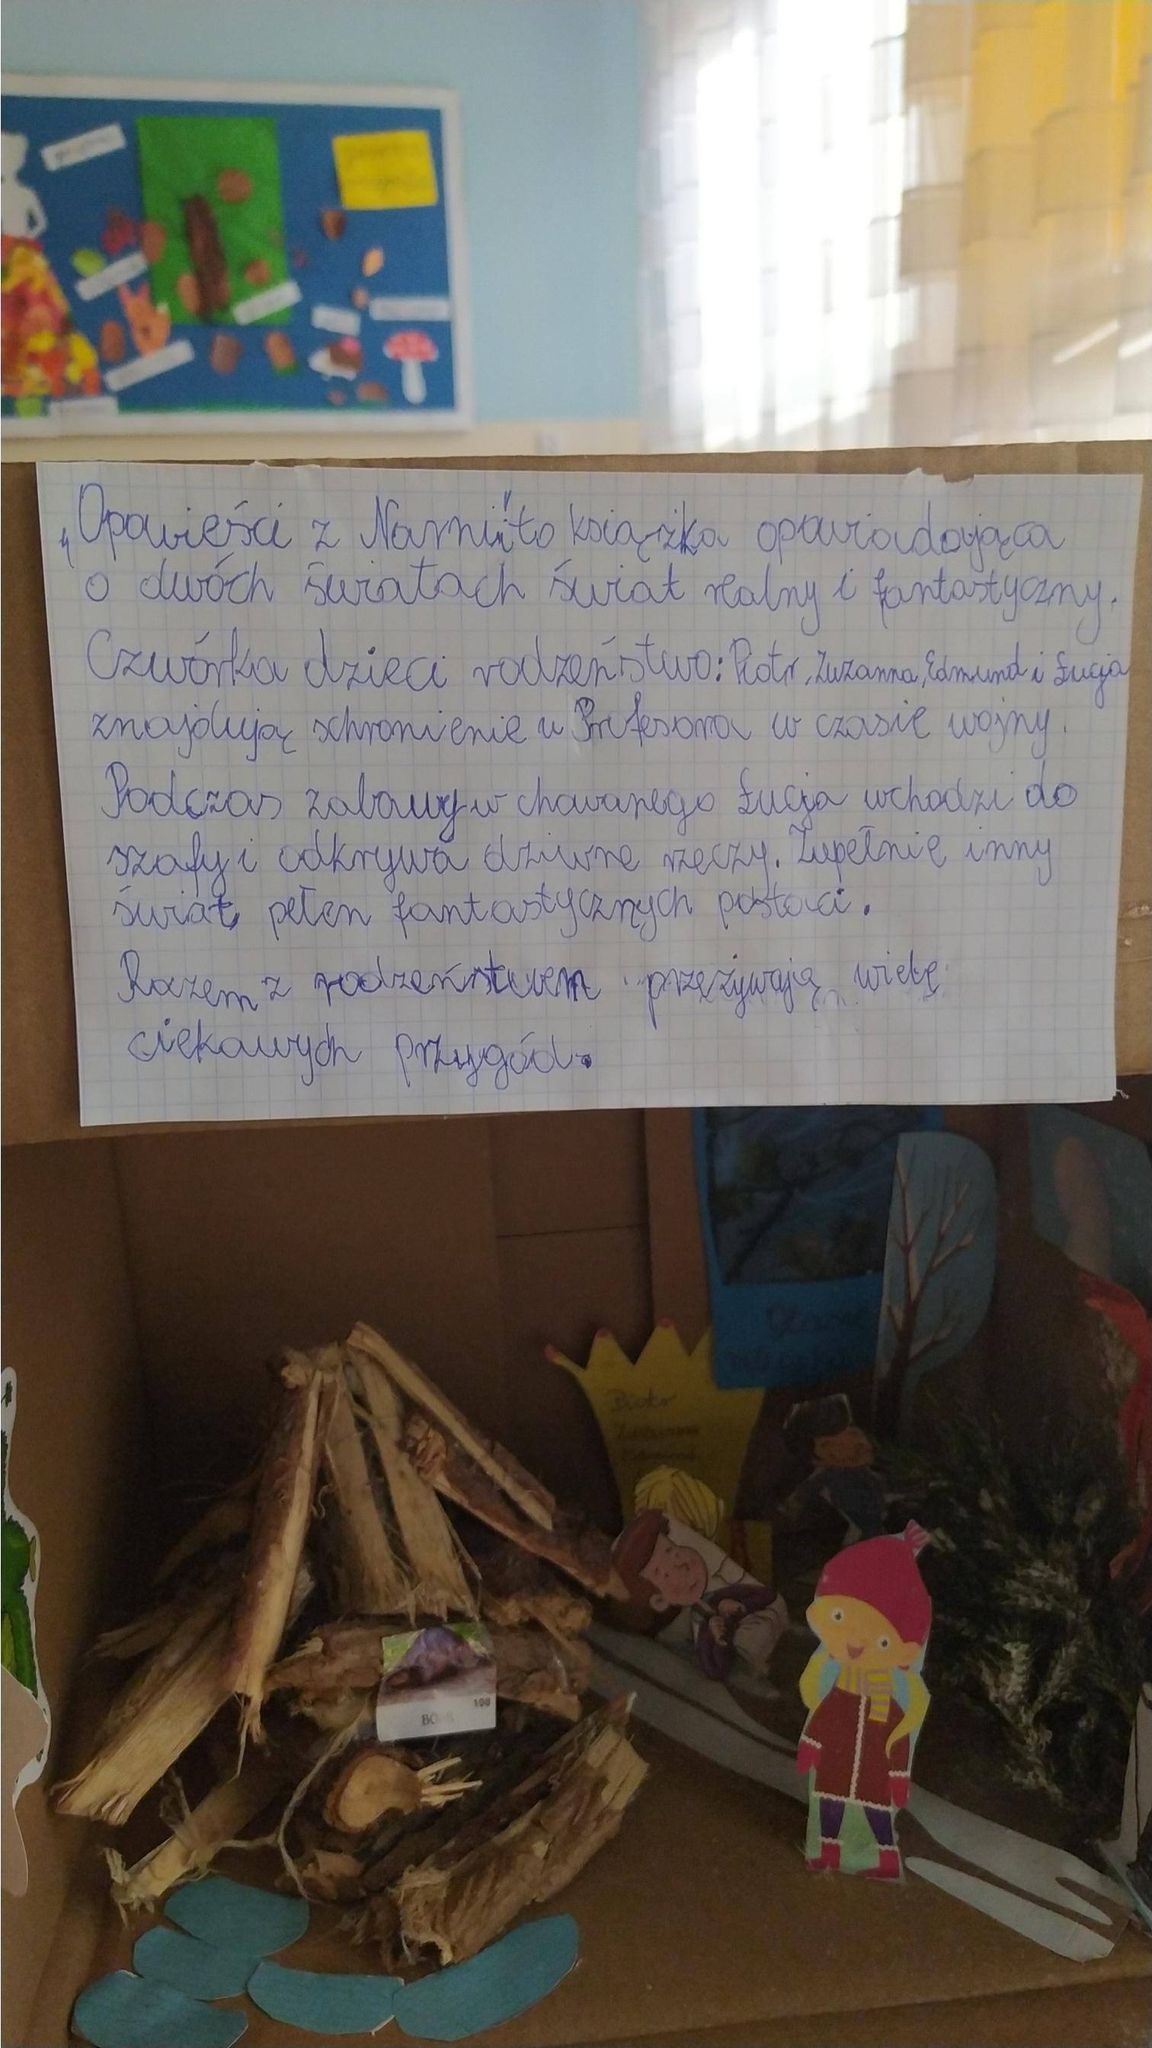 „Opowieści z Narnii" to książka opowiadająca
o dwóch światach świat realny i fantastyczny.
Czwórka dzieci rodzeństwo: Piotr, Zuzanna, Edmund i Łucja
znajdują schronienie u Profesora w czasie wojny.
Podczas zabawy w chowanego Łucja wchodzi do
szafy i odkrywa dziwne rzeczy. Zupełnie inny
świat, pełen fantastycznych postaci.
Razem z rodzeństwem przeżywają wiele
ciekawych przygód.
Piotr
Zuzanna
Edmund
198